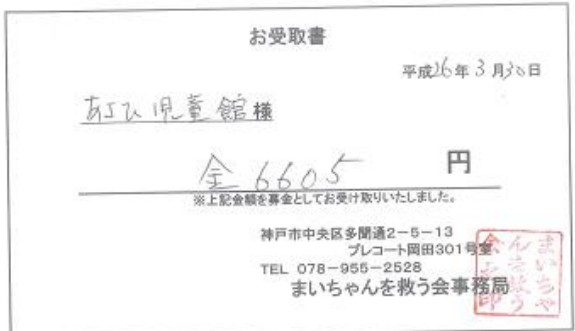 お受取書
平成26年3月30日
あさひ児童館様
金6605円
※上記金額を募金としてお受け取りいたしました。
神戸市中央区多聞通2-5-13
プレコート岡田301号室
TEL 078-955-2528
まいちゃんを救う会事務局
まいちゃ
んを救う
会之印